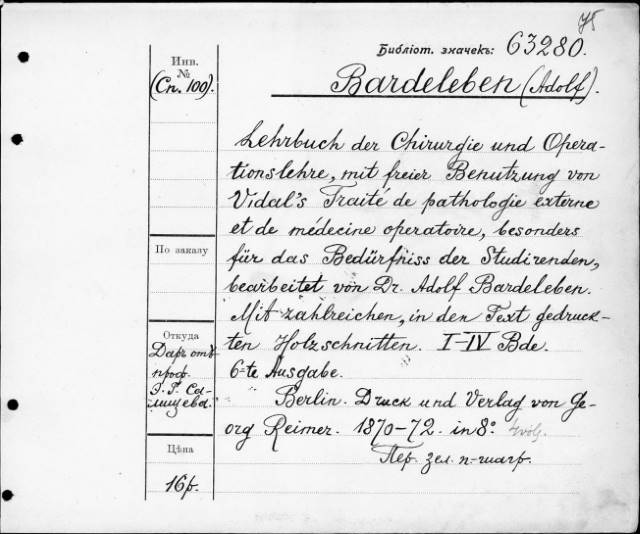 У5
Библіот. значекъ: 63280.
Bardeleben (Adolf).
Инв.
№
(Сп. 100).
Lehrbuch der Chirurgie und Opera-
tionslehre, mit freier Benutzung von
Vidal's Traité de pathologie externe
et de médecine operatoire, besonders
für das Bedürfniss der Studirenden,
bearbeitet von Dr. Adolf Bardeleben.
Mit zahlreichen, in den Text gedruck-
ten Holzschnitten. I-IV Bde.
6-te Ausgabe.
Berlin. Druck und Verlag von Ge-
org Reimer. 1870-72. in 8º 4 vol.
Пер. зел. п-шагр.
По заказу
Откуда
Даръ отъ
проф.
Э. Г. Са-
лищева.
Цѣна
16 р.